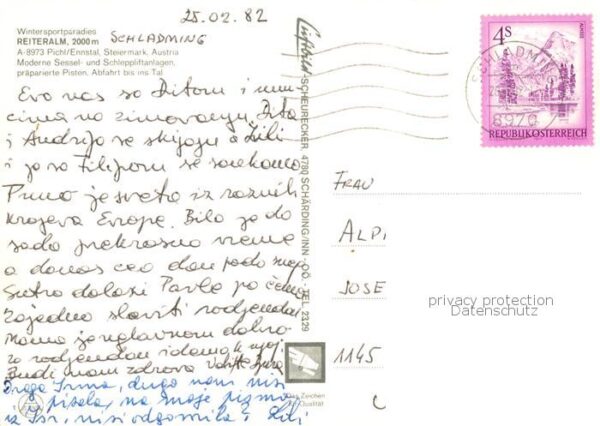 25.02.82
SCHLADMING
Wintersportparadies
REITERALM, 2000 m
A-8973 Pichl/Ennstal, Steiermark, Austria
Moderne Sessel- und Schleppliftanlagen,
präparierte Pisten, Abfahrt bis ins Tal.
Evo nas sa Ditom i uni
cima na zimovanju. Dita
i Andrija se skijaju a Lili
i ja sa Filipom se sankamo
Puno je sveta iz raznih
krajeva Evrope. Bilo je do
sada prekrasno vreme
a danas ceo dan pada sneg
Sutra dolazi Pavle pa ćemo
zajedno slaviti rodjendan
Nama je uglavnom dobro
za rodjendan idemo k njoj
Budi nam zdrava
Draga Irma, dugo nam nisi
pisala, na moje pismo
iz nisi odgovorila. Lili
Luftbild SCHEURECKER, 4780 SCHÄRDING/INN · OÖ. · TEL. 2329
Das Zeichen
für Qualität
4S
SCHLADMING
8970
REPUBLIK ÖSTERREICH
FRAU
ALPI
JOSE
1145
privacy protection
Datenschutz